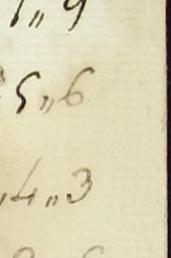 1 " 9
5 " 6
4 " 3